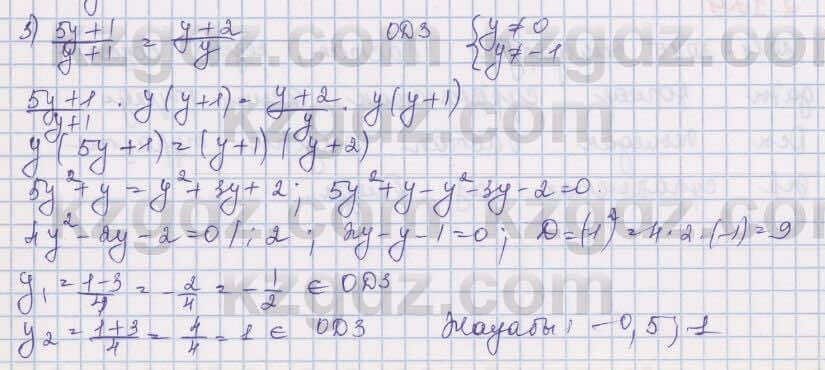 3) (5y+1)/(y+1) = (y+2)/y   ОДЗ   { y ≠ 0
{ y ≠ -1
(5y+1)/(y+1) · y(y+1) = (y+2)/y · y(y+1)
y(5y+1) = (y+1)(y+2)
5y²+y = y²+3y+2; 5y²+y-y²-3y-2=0.
4y²-2y-2=0 /:2; 2y-y-1=0; D=(-1)²-4·2·(-1)=9
y₁ = (1-3)/4 = -2/4 = -1/2 ∈ ОДЗ
y₂ = (1+3)/4 = 4/4 = 1 ∈ ОДЗ   Жауабы: -0,5; 1
kzgdz.com kzgdz.com
kzgdz.com
kzgdz.com kzgdz.com
kzgdz.com